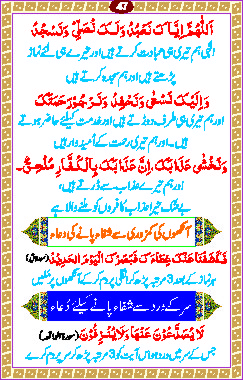 47
اَللّٰهُمَّ اِيَّاكَ نَعْبُدُ وَلَكَ نُصَلِّيْ وَنَسْجُدُ
الٰہی ہم تیری ہی عبادت کرتے ہیں اور تیرے ہی لئے نماز
پڑھتے ہیں اور ہم سجدہ کرتے ہیں
وَاِلَيْكَ نَسْعٰى وَنَحْفِدُ وَنَرْجُوْ رَحْمَتَكَ
اور ہم تیری ہی طرف دوڑتے ہیں اور خدمت کیلئے حاضر ہوتے
ہیں۔ اور ہم تیری رحمت کے اُمیدوار ہیں
وَنَخْشٰى عَذَابَكَ اِنَّ عَذَابَكَ بِالْكُفَّارِ مُلْحِقٌ۔
اور ہم تیرے عذاب سے ڈرتے ہیں،
بے شک تیرا عذاب کافروں کو ملنے والا ہے
آنکھوں کی کمزوری سے شفاء پانے کی دُعاء
فَكَشَفْنَا عَنْكَ غِطَآءَكَ فَبَصَرُكَ الْيَوْمَ حَدِيْدٌ
ہر نماز کے بعد 3 مرتبہ پڑھ کر انگلی پر دم کر کے آنکھوں پر ملیں
سر کے درد سے شفاء پانے کیلئے دُعاء
لَا يُصَدَّعُوْنَ عَنْهَا وَلَا يُنْزِفُوْنَ
جس کے سر میں درد ہو اس آیت کو 3 مرتبہ پڑھ کر سر پر دم کرے